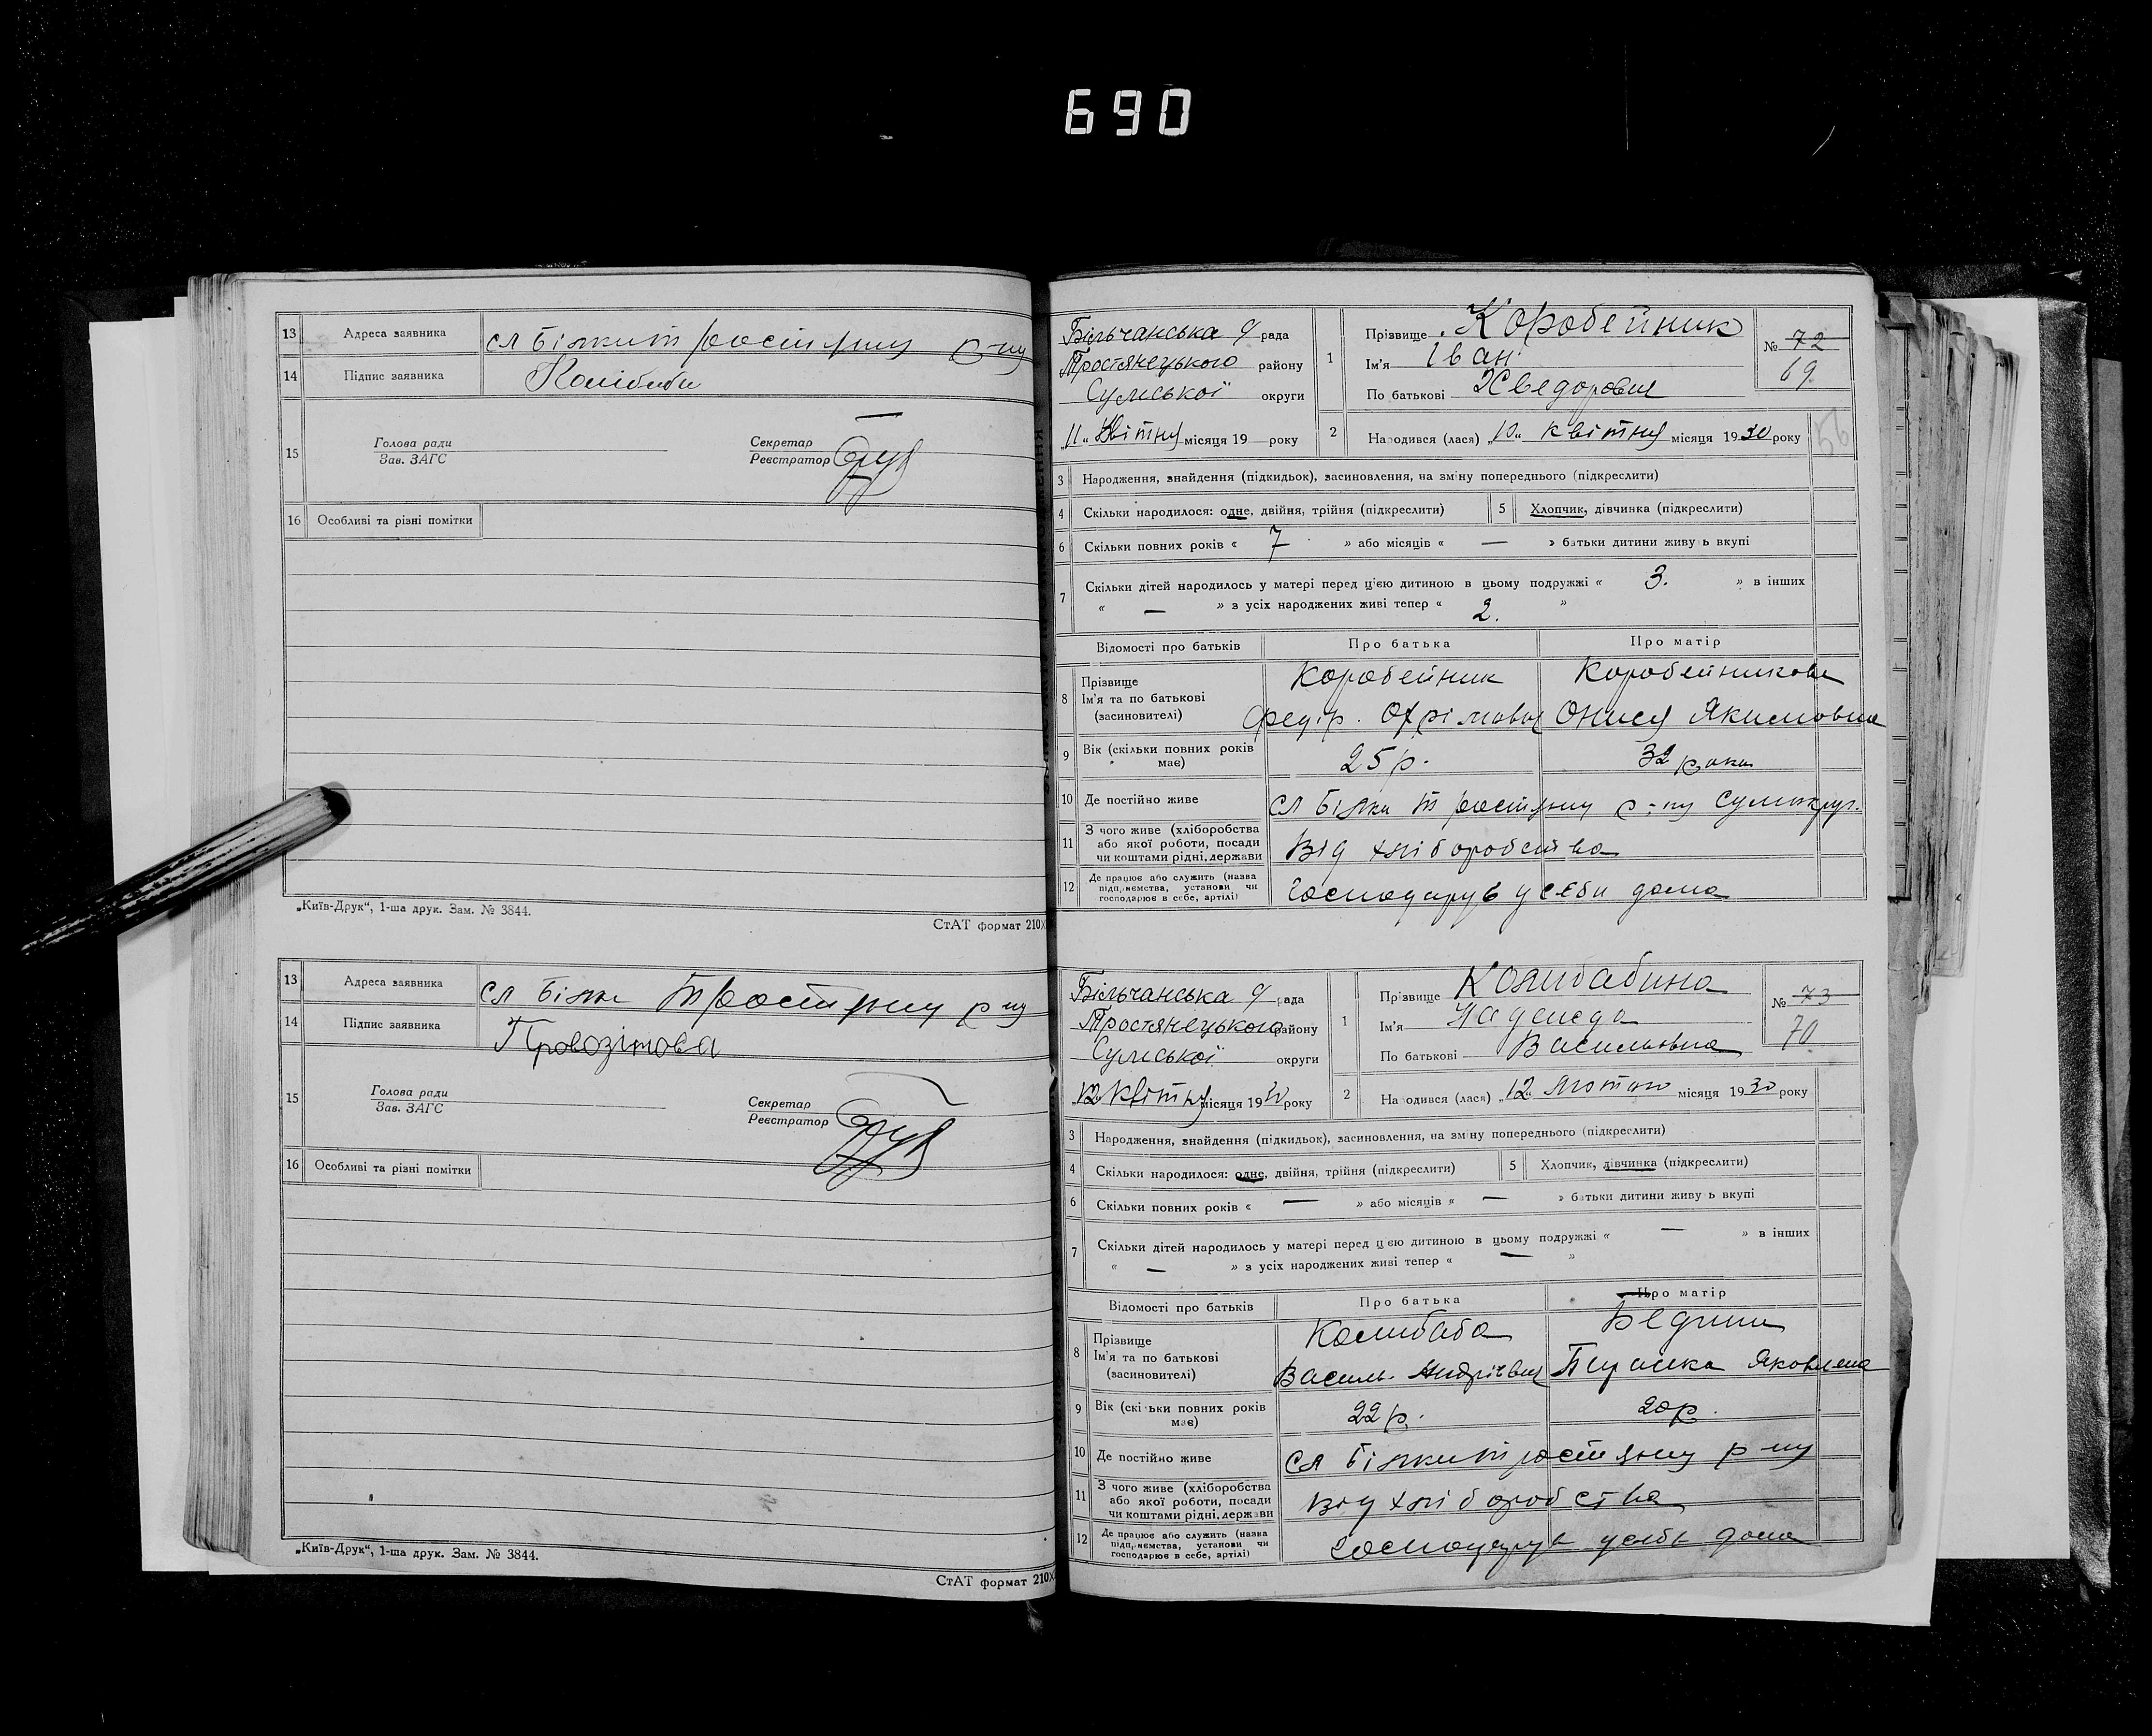 690
13 Адреса заявника сл Білки Тростянец р-ну
14 Підпис заявника
15 Голова ради Секретар
Зав. ЗАГС Реєстратор
16 Особливі та різні помітки
„Київ-Друк“, 1-ша друк. Зам. № 3844.
СтАТ формат 210×
13 Адреса заявника сл Білки р-ну
14 Підпис заявника
15 Голова ради Секретар
Зав. ЗАГС Реєстратор
16 Особливі та різні помітки
„Київ-Друк“, 1-ша друк. Зам. № 3844.
СтАТ формат 210×
Більчанська с/рада
Тростянецького району
Сумської округи
„11„ Квітня місяця 19 року
1 Прізвище Коробейник
Ім'я Іван
По батькові Хведорович
№ 72
69
2 Народився (лася) „10„ квітня місяця 1930 року
56
3 Народження, знайдення (підкидьок), засиновлення, на зміну попереднього (підкреслити)
4 Скільки народилося: одне, двійня, трійня (підкреслити) 5 Хлопчик, дівчинка (підкреслити)
6 Скільки повних років « 7 » або місяців « — » батьки дитини живуть вкупі
7 Скільки дітей народилось у матері перед цією дитиною в цьому подружжі « 3. » в інших
« — » з усіх народжених живі тепер « 2. »
Відомості про батьків Про батька Про матір
8 Прізвище Коробейник Коробейникова
Ім'я та по батькові
(засиновителі) Федір. Охрімович Онися Якимовна
9 Вік (скільки повних років має) 25 р. 32 роки
10 Де постійно живе сл Білки р-ну
11 З чого живе (хліборобства
або якої роботи, посади
чи коштами рідні, держави від хліборобства
12 Де працює або служить (назва
підприємства, установи чи
господарює в себе, артілі) господарує у себи дома
Більчанська с/рада
Тростянецького району
Сумської округи
„12„ Квітня місяця 1930 року
1 Прізвище Колибабина
Ім'я Надежда
По батькові Васильовна
№ 73
70
2 Народився (лася) „12„ Лютого місяця 1930 року
3 Народження, знайдення (підкидьок), засиновлення, на зміну попереднього (підкреслити)
4 Скільки народилося: одне, двійня, трійня (підкреслити) 5 Хлопчик, дівчинка (підкреслити)
6 Скільки повних років « — » або місяців « — » батьки дитини живуть вкупі
7 Скільки дітей народилось у матері перед цією дитиною в цьому подружжі « — » в інших
« — » з усіх народжених живі тепер « — »
Відомості про батьків Про батька Про матір
8 Прізвище Колибаба
Ім'я та по батькові
(засиновителі) Василь Андрієвич Яковлена
9 Вік (скільки повних років має) 22 р. 20 р.
10 Де постійно живе сл Білки р-ну
11 З чого живе (хліборобства
або якої роботи, посади
чи коштами рідні, держави від хліборобства
12 Де працює або служить (назва
підприємства, установи чи
господарює в себе, артілі) дома